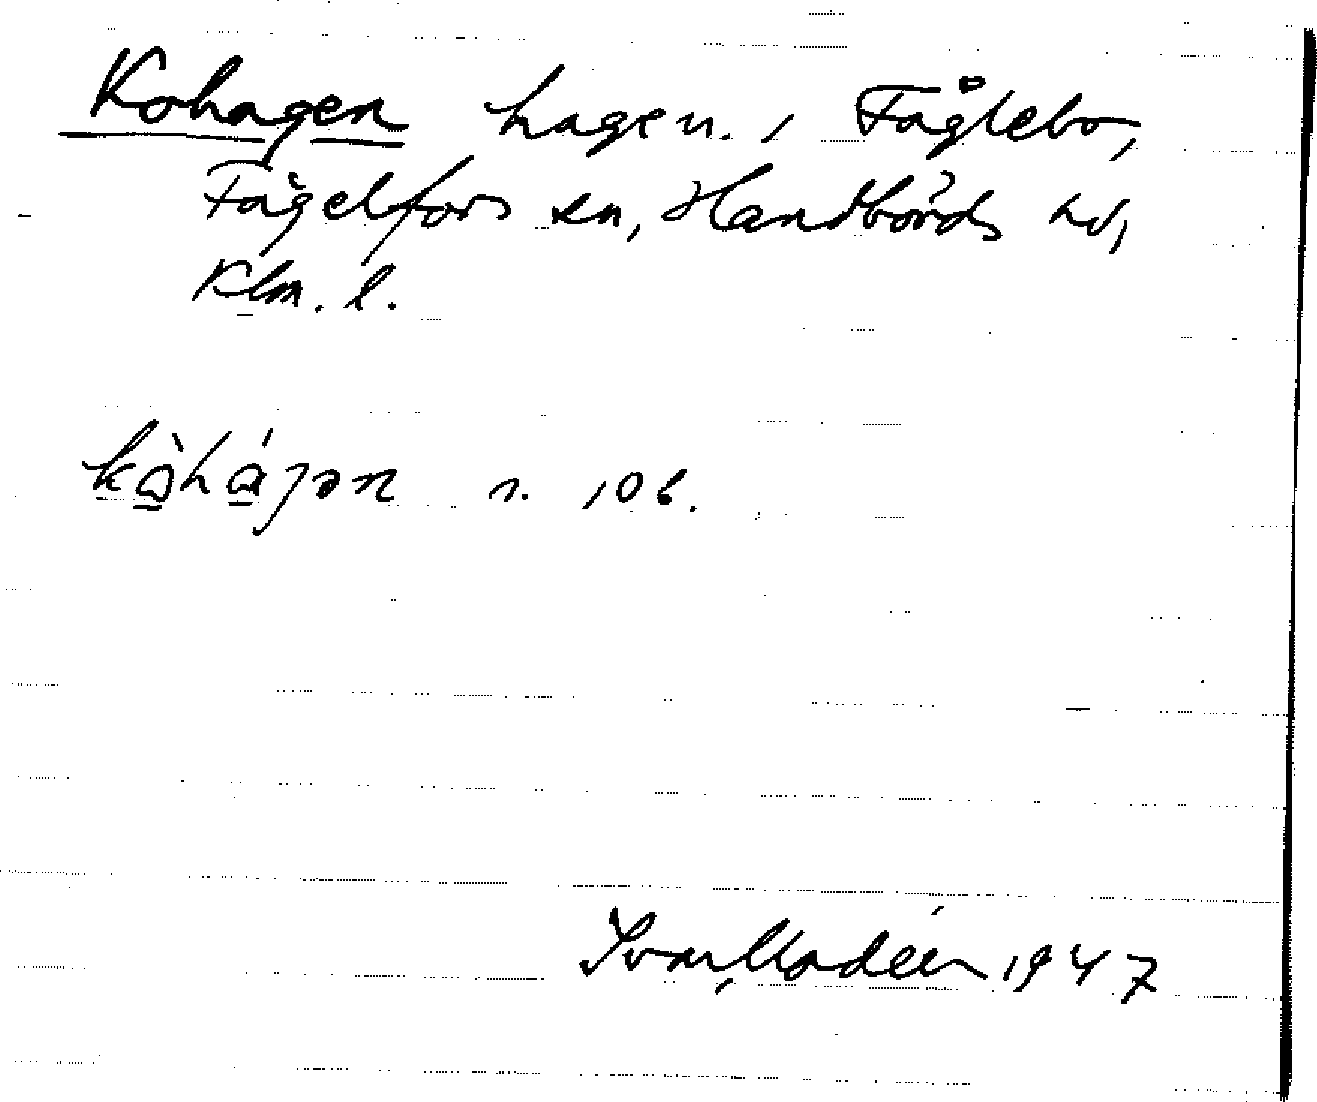 Kohagen hagen. i Fåglebo,
Fågelfors sn, Handbörds hd,
Klm. l.
kò̱há̱ȷən s. 106.
Ivar Modéer 1947